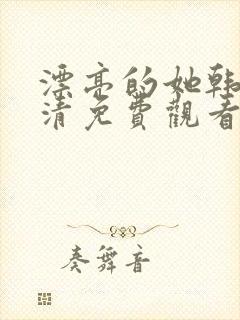 漂亮的她韩
清免費觀看
奏舞音